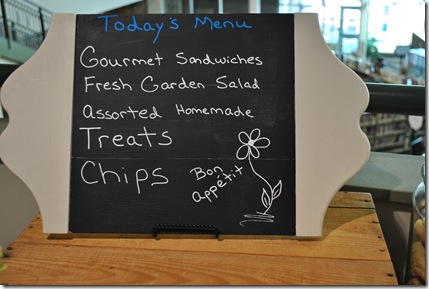 Today's Menu
Gourmet Sandwiches
Fresh Garden Salad
Assorted Homemade
Treats
Chips
Bon
appétit